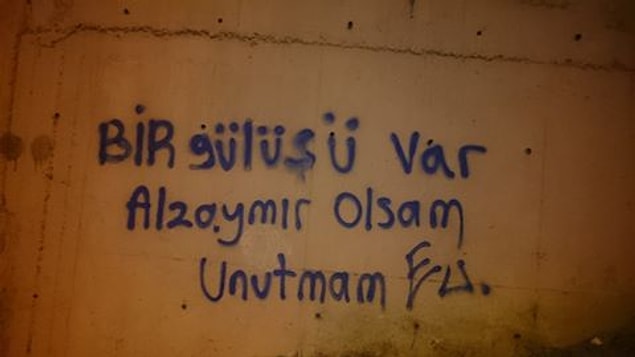 BİR gülüşÜ Var
Alzaymır Olsam
Unutmam